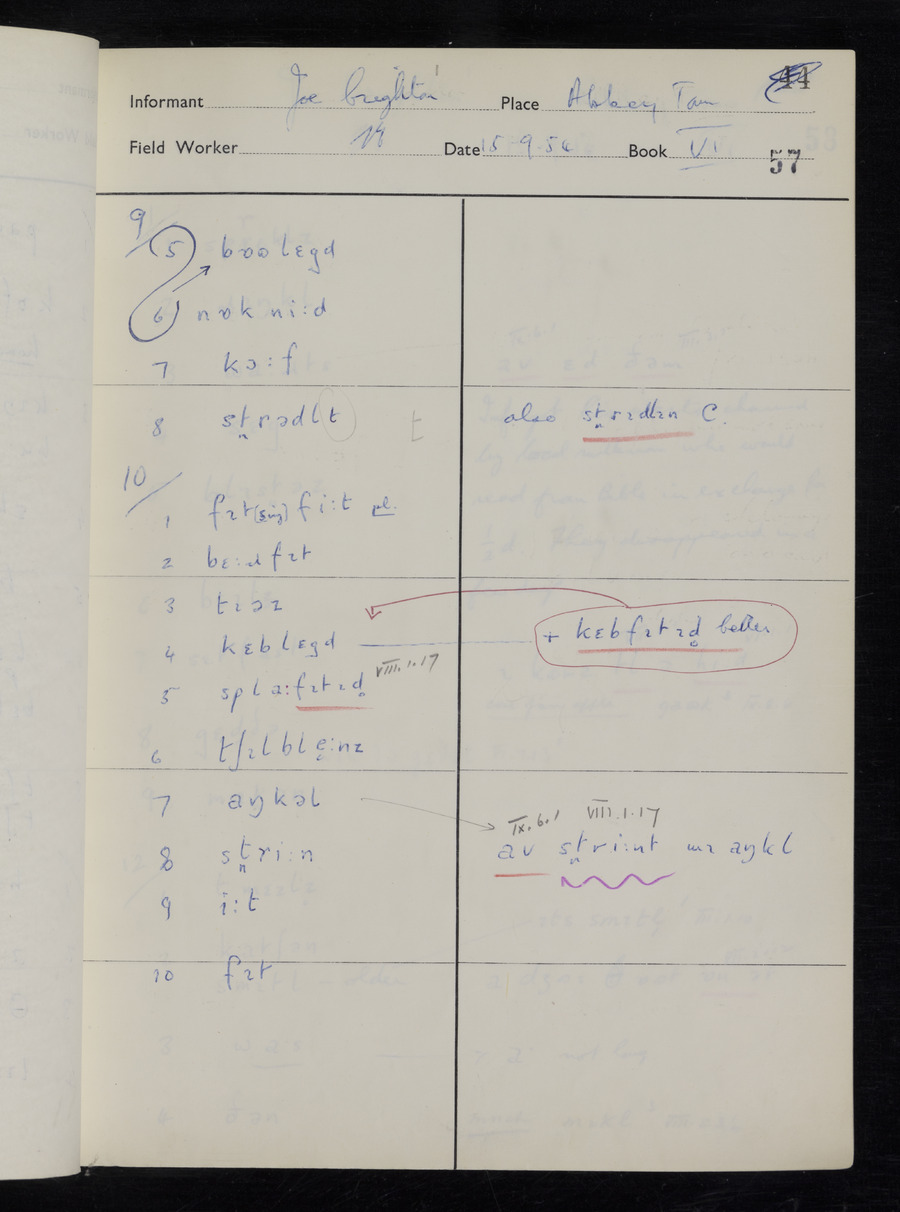 44
Informant Joe Brighton Place Abbey Town
Field Worker Date 15.9.54 Book VI
57
9/
5 bɷɷlɛgd
6 nɒk ni:d
7 kɔ:f
8 strɘdlt t also strɪdlɪn C.
10/
1 fɪt (sing) fi:t pl.
2 bɛ:ɹfɪt
3 tɪɘz
4 kɛblɛgd + kɛbfɪtɪd better
5 spla:fɪtɪd VIII.1.17
6 tʃɪlbleːnz
7 aŋkəl IX.6.1 VIII.1.17
8 stri:n av stri:nt mɪ aŋkl
9 i:t
10 fɪt